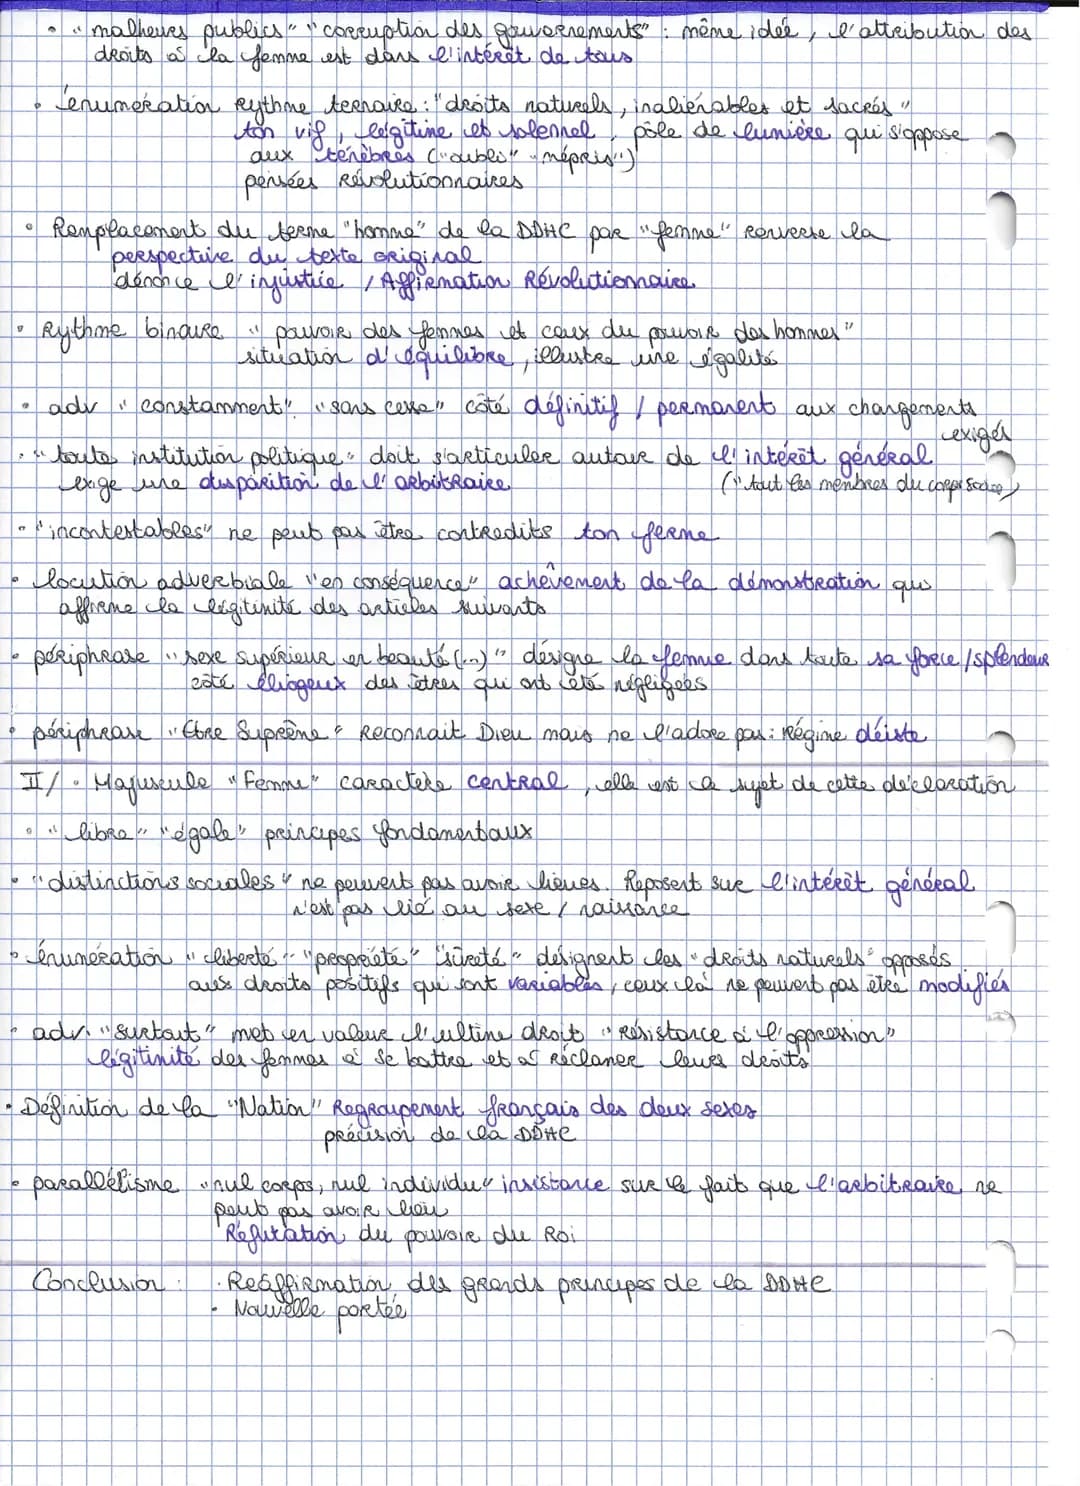 • "malheurs publics" "corruption des gouvernements" : même idée, l'attribution des
droits à la femme est dans l'intérêt de tous
• énumération rythme ternaire : "droits naturels, inaliénables et sacrés"
ton vif, légitime et solennel, pôle de lumière qui s'oppose
aux ténèbres ("oubli" "mépris")
pensées révolutionnaires
• Remplacement du terme "homme" de la DDHC par "femme" renverse la
perspective du texte original
dénonce l'injustice / Affirmation Révolutionnaire
• Rythme binaire "pouvoir des femmes et ceux du pouvoir des hommes"
situation d'équilibre, illustre une égalité
• adv "constamment", "sans cesse" côté définitif / permanent aux changements
exigés
• "toute institution politique" doit s'articuler autour de l'intérêt général
exige une disparition de l'arbitraire ("tout les membres du corps social")
• "incontestables" ne peut pas être contredits ton ferme
• locution adverbiale "en conséquence" achèvement de la démonstration qui
affirme la légitimité des articles suivants
• périphrase "sexe supérieur en beauté (...)" désigne la femme dans toute sa force / splendeur
côté éliogeux des êtres qui ont été négligées
• périphrase "Être Suprême" Reconnait Dieu mais ne l'adore pas : Régime déiste
II/ • Majuscule "Femme" caractère central, elle est le sujet de cette déclaration
• "libre" "égale" principes fondamentaux
• "distinctions sociales" ne peuvent pas avoir lieues. Reposent sur l'intérêt général
n'est pas lié au sexe / naissance
• énumération "liberté" "propriété" "sûreté" désignent les "droits naturels" opposés
aux droits positifs qui sont variables, ceux là ne peuvent pas être modifiés
• adv. "surtout" met en valeur l'ultime droit "résistance à l'oppression"
légitimité des femmes à se battre et à réclamer leurs droits
• Définition de la "Nation" Regroupement français des deux sexes
précision de la DDHC
• parallélisme "nul corps, nul individu" insistance sur le fait que l'arbitraire ne
peut pas avoir lieu
Réfutation du pouvoir du Roi
Conclusion : • Réaffirmation des grands principes de la DDHC
• Nouvelle portée